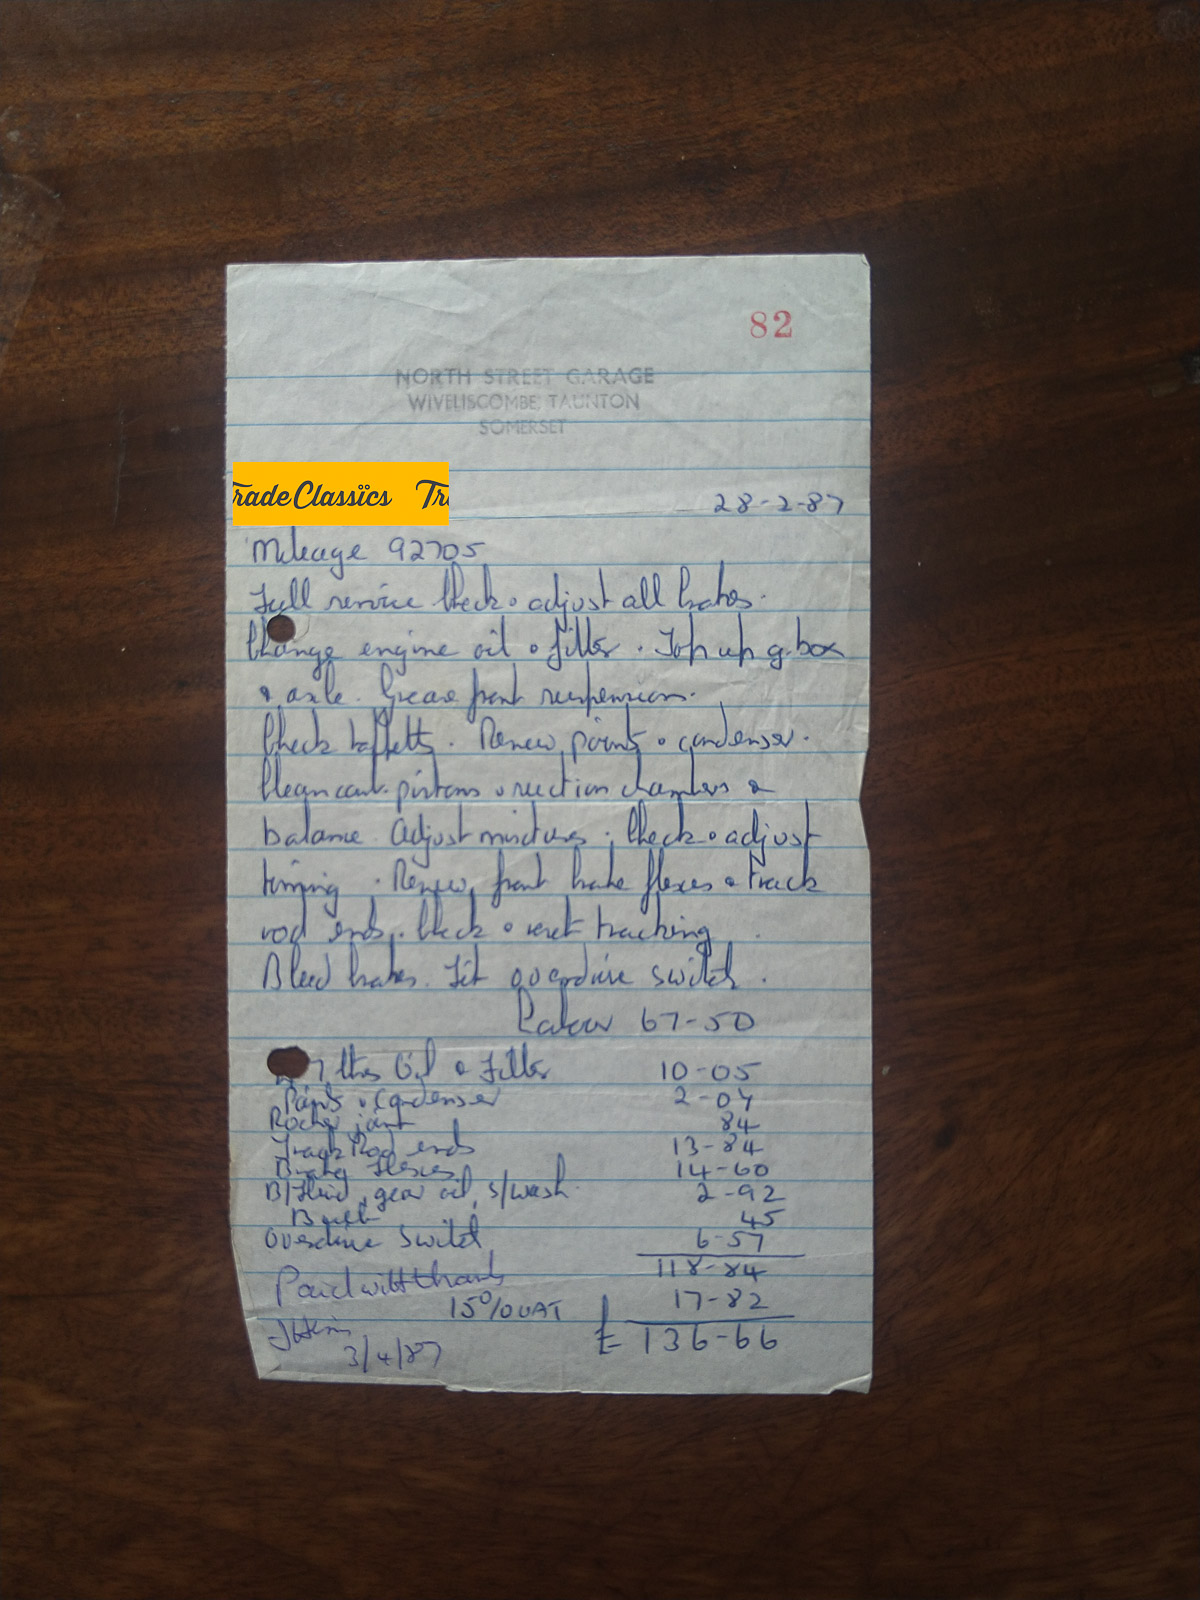 82
NORTH STREET GARAGE
WIVELISCOMBE, TAUNTON
SOMERSET
rade Classics Tr
28-2-87
Mileage 92705
Full service Check & adjust all brakes.
Change engine oil & filter. Top up g.box
& axle. Grease front suspension.
Check Renew points & condenser.
Clean carb. pistons & suction chambers &
balance. Adjust mixtures. Check & adjust
timing. Renew front brake flexes & track
rod ends. Check & reset tracking.
Bleed brakes. Fit overdrive switch.
Labour 67-50
7 ltrs Oil & Filter 10-05
Points & condenser 2-04
Rocker joint 84
Track Rod ends 13-84
Brake Flexes 14-60
B/Fluid, gear oil, s/wash. 2-92
Bulb 45
Overdrive Switch 6-57
118-84
Paid with thanks
15% VAT 17-82
£136-66
3/4/87